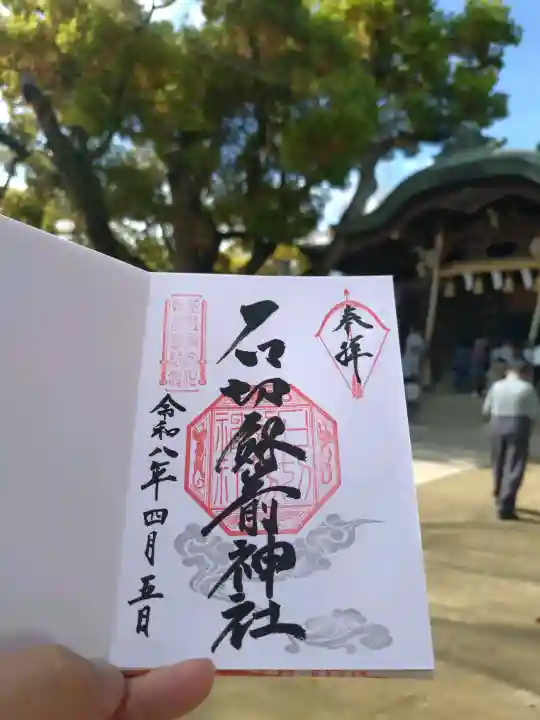 奉拝
石切劔箭神社
令和八年四月五日